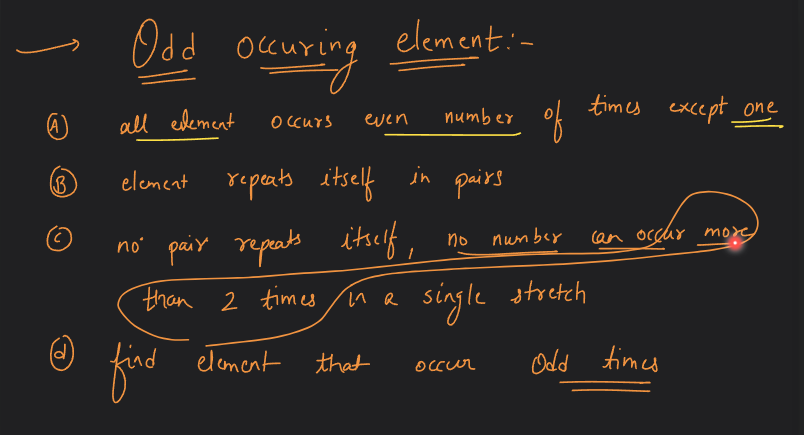 → Odd occuring element:-
(A) all element occurs even number of times except one
(B) element repeats itself in pairs
(C) no pair repeats itself, no number can occur more
than 2 times in a single stretch
(d) find element that occur Odd times